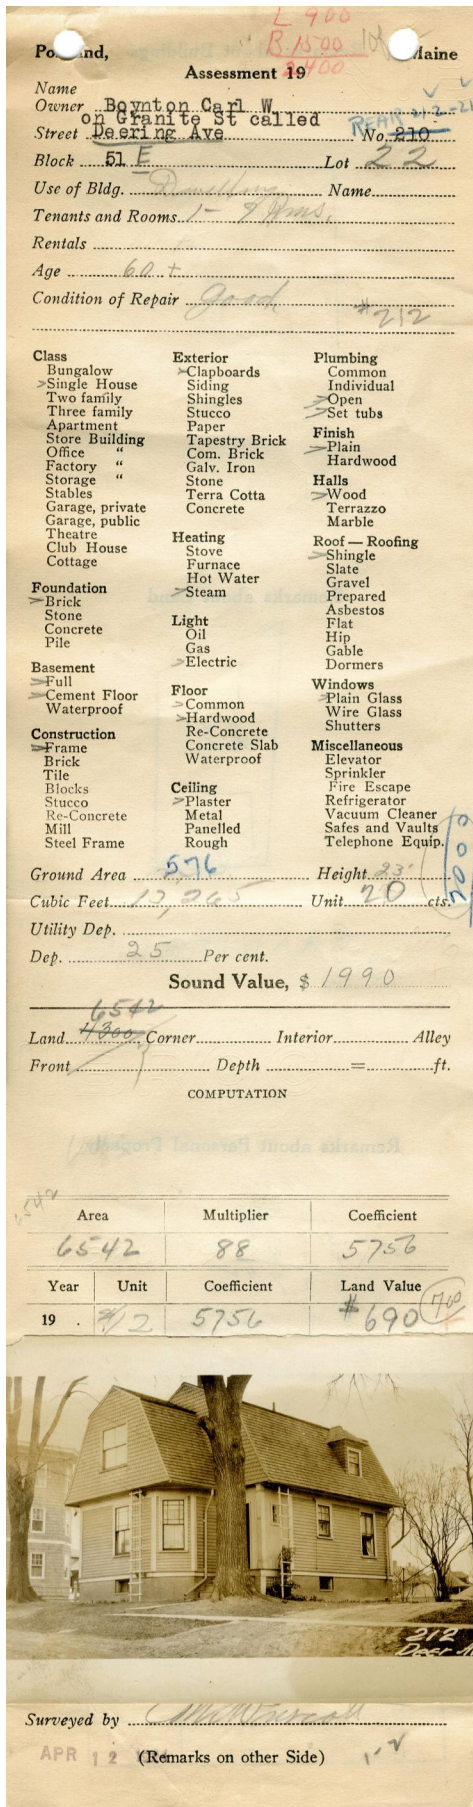 L 900
B 1500
2400
Portland, Maine
Assessment 19
Name
Owner Boynton Carl W
on Granite St called
REAR 212-21
Street Deering Ave No. 210
Block 51 E Lot 22
Use of Bldg. Dwelling Name
Tenants and Rooms 1 - 9 Rms.
Rentals
Age 60 +
Condition of Repair good
#212
Class
Bungalow
> Single House
Two family
Three family
Apartment
Store Building
Office "
Factory "
Storage "
Stables
Garage, private
Garage, public
Theatre
Club House
Cottage
Foundation
> Brick
Stone
Concrete
Pile
Basement
> Full
> Cement Floor
Waterproof
Construction
> Frame
Brick
Tile
Blocks
Stucco
Re-Concrete
Mill
Steel Frame
Exterior
> Clapboards
Siding
Shingles
Stucco
Paper
Tapestry Brick
Com. Brick
Galv. Iron
Stone
Terra Cotta
Concrete
Heating
Stove
Furnace
Hot Water
> Steam
Light
Oil
Gas
> Electric
Floor
> Common
> Hardwood
Re-Concrete
Concrete Slab
Waterproof
Ceiling
> Plaster
Metal
Panelled
Rough
Plumbing
Common
Individual
> Open
> Set tubs
Finish
> Plain
Hardwood
Halls
> Wood
Terrazzo
Marble
Roof — Roofing
> Shingle
Slate
Gravel
Prepared
Asbestos
Flat
Hip
Gable
Dormers
Windows
> Plain Glass
Wire Glass
Shutters
Miscellaneous
Elevator
Sprinkler
Fire Escape
Refrigerator
Vacuum Cleaner
Safes and Vaults
Telephone Equip.
2000
Ground Area 576 Height 23'
Cubic Feet 13,265 Unit 20 cts.
Utility Dep.
Dep. 25 Per cent.
Sound Value, $ 1990
6542
Land 4300 Corner Interior Alley
Front Depth = ft.
COMPUTATION
Remarks about Personal Property
6542
Area Multiplier Coefficient
6542 88 5756
Year Unit Coefficient Land Value
19 . 12 5756 $690 700
212
Deer A
Surveyed by
APR 12
(Remarks on other Side)
1-2